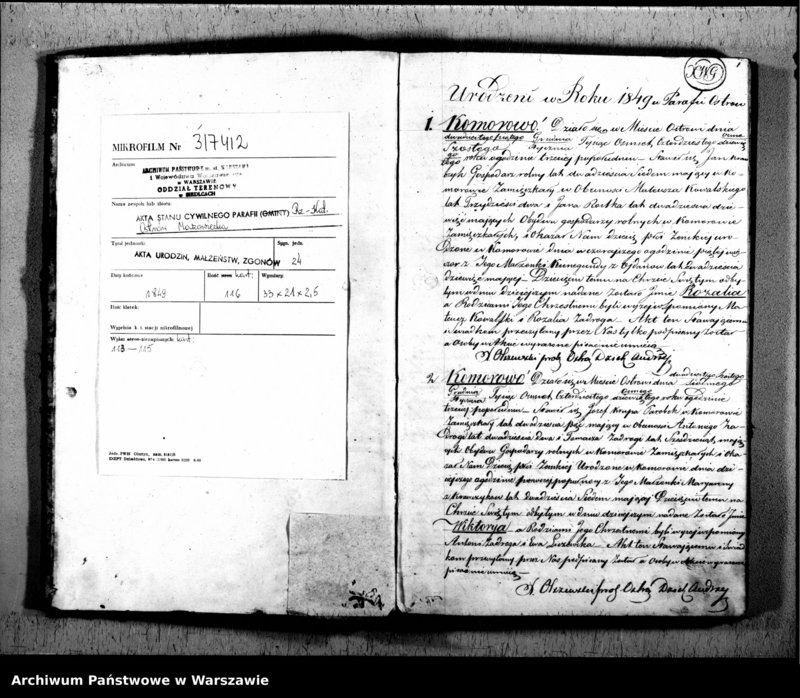 MIKROFILM Nr 3/7412
Archiwum
ARCHIWUM PAŃSTWOWE m. st. WARSZAWY
i Województwa Warszawskiego
w WARSZAWIE
ODDZIAŁ TERENOWY
w SIEDLCACH
Nazwa zespołu lub zbioru:
AKTA STANU CYWILNEGO PARAFII (GMINY) Rz-Kat.
Ostrów Mazowiecka
Tytuł jednostki
AKTA URODZIN, MAŁŻEŃSTW, ZGONÓW
Sygn. jedn.
24
Daty końcowe
1849
Ilość kart:
116
Wymiary:
33 x 21 x 2,5
Ilość klatek:
Wypełnia k. i. stacji mikrofilmowej
Wykaz stron niezapisanych: kart:
113 – 115
1
Urodzeni w Roku 1849 w Parafii Ostrow
1. Komorowo. Działo się w Mieście Ostrowi dnia
dwudziestego szóstego Grudnia
Szóstego Stycznia Tysiąc Ośmset Czterdziestego
roku o godzinie trzeciej popołudniu – Stawił się Jan
był Gospodarz rolny lat dwadzieścia siedem mający w Ko-
morowie Zamieszkały w Obecności Mateusza Kowalskiego
lat Trzydzieści dwa i Jana Rostka lat dwadzieścia dzie-
więć mających Obydwu gospodarzy rolnych w Komorowie
Zamieszkałych, i Okazał Nam dziecię płci Żeńskiej uro-
dzone w Komorowie dnia wczorajszego o godzinie piątej
z Jego Małżonki Kunegundy z lat dwadzieścia
dziewięć mającej – Dziecięciu temu na Chrzcie Świętym odby-
tym w dniu dzisiejszym nadane zostało Imie Rozalia
a Rodzicami Jego Chrzestnemi byli wyżej wspomniany Ma-
teusz Kowalski i Rozalia Zadroga – Akt ten Stawającemu
i świadkom przeczytany przez Nas tylko podpisany został
a Osoby w Akcie wyrażone pisać nie umieią
2. Komorowo. Działo się w Mieście Ostrowi dnia
dwudziestego szóstego
Siódmego
Grudnia
Stycznia Tysiąc Ośmset Czterdziestego roku o godzinie
trzeciej popołudniu – Stawił się Józef Krupa Parobek w Komorowie
Zamieszkały lat dwadzieścia pięć mający w Obecności Antoniego Za-
drogi lat dwadzieścia dwa i Tomasza Zadrogi lat mają-
cych Obydwu Gospodarzy rolnych w Komorowie Zamieszkałych i Oka-
zał Nam Dziecię płci Żeńskiej Urodzone w Komorowie dnia dzi-
siejszego o godzinie pierwszej z Jego Małżonki Maryanny
z lat dwadzieścia Siedem mającej Dziecięciu temu na
Chrzcie Świętym odbytym w dniu dzisiejszym nadane Zostało Imie
Wiktorya a Rodzicami Jego Chrzestnemi byli wyżej wspomniany
Antoni Zadroga i Ewa – Akt ten Stawającemu i Świad-
kom przeczytany przez Nas podpisany Został a Osoby w Akcie wyrażone
pisać nie umieią –
Archiwum Państwowe w Warszawie